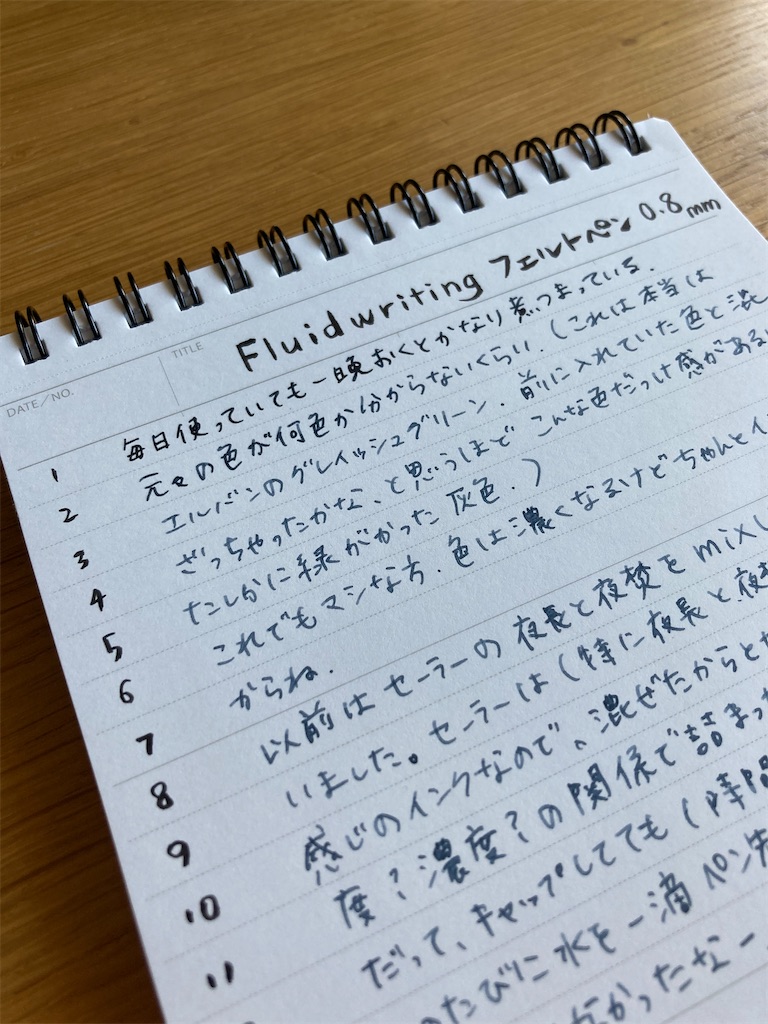 DATE/NO.
TITLE
Fluidwriting フェルトペン 0.8mm
1 毎日使っていても一晩おくとかなり煮つまっている.
2 元々の色が何色か分からないくらい.(これは本当は
3 エルバンのグレイッシュグリーン.前に入れていた色と混
4 ざっちゃったかな、と思うほど こんな色だっけ感がある
5 たしかに緑がかった灰色.)
6 これでもマシな方.色は濃くなるけどちゃんとイン
7 からね.
8 以前はセーラーの夜長と夜焚をmixし
9 いました。セーラーは(特に夜長と夜焚
10 感じのインクなので、混ぜたからとか
11 度?濃度?の関係で詰まっ
だって、キャップしてても(時間
のたびに水を一滴ペン先
かったなー